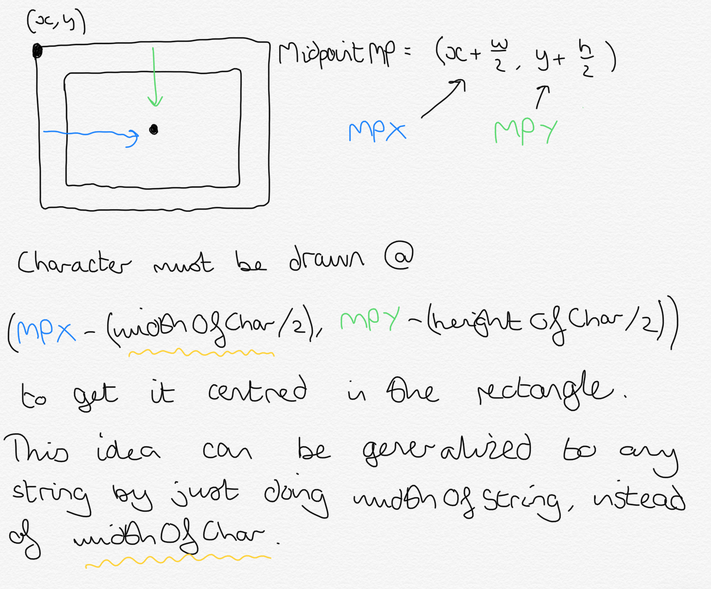 (x,y)
Midpoint MP = (x + w/2, y + h/2)
MPX MPY
Character must be drawn @
(MPX - (widthOfChar/2), MPY - (heightOfChar/2))
to get it centred in the rectangle.
This idea can be generalized to any
string by just doing widthOfString, instead
of widthOfChar.